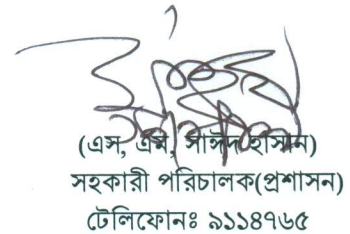 (এস, এম, সাঈদ হাসান)
সহকারী পরিচালক(প্রশাসন)
টেলিফোনঃ ৯১১৪৭৬৫